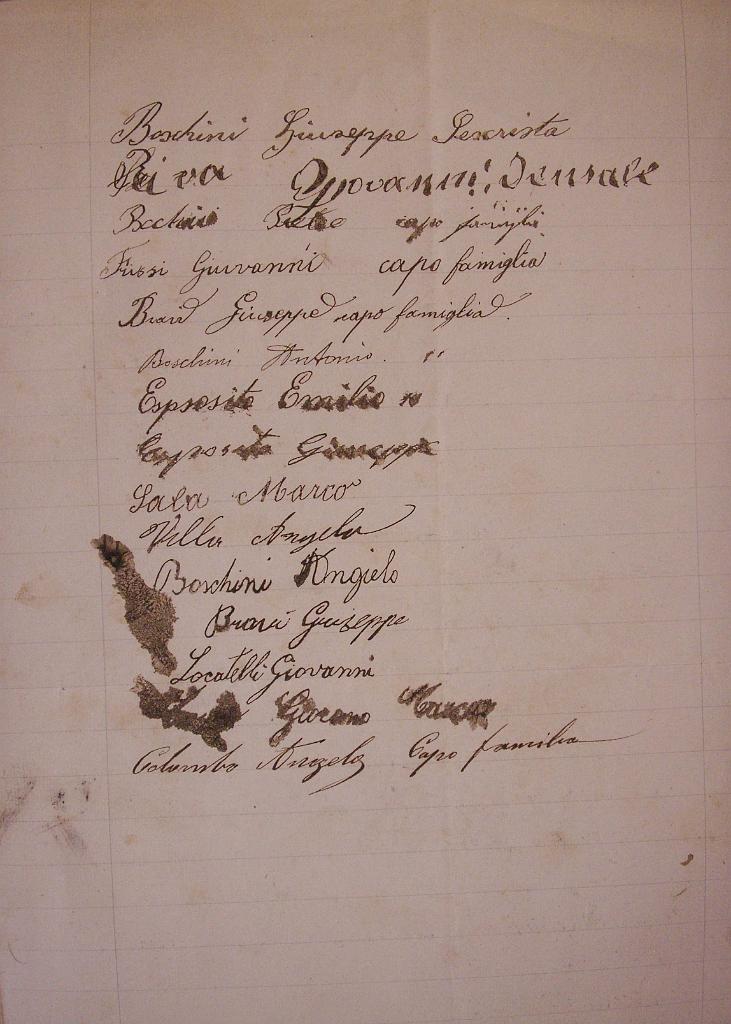 Boschini Giuseppe
Riva Giovanni, Sensale
capo famiglia
Fussi Giuvanni capo famiglia
Giuseppe capo famiglia.
Boschini Antonio. "
Esposito Emilio "
Esposito Giuseppe
Sala Marco
Villa Angelo
Boschini Angielo
Giuseppe
Locatelli Giovanni
Marco
Colombo Angelo Capo familia